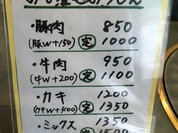 ・豚肉 850
(豚W+150) 定 1000
・牛肉 950
(牛W+200) 定 1100
・カキ 1200
定 1350
・ミックス 1350